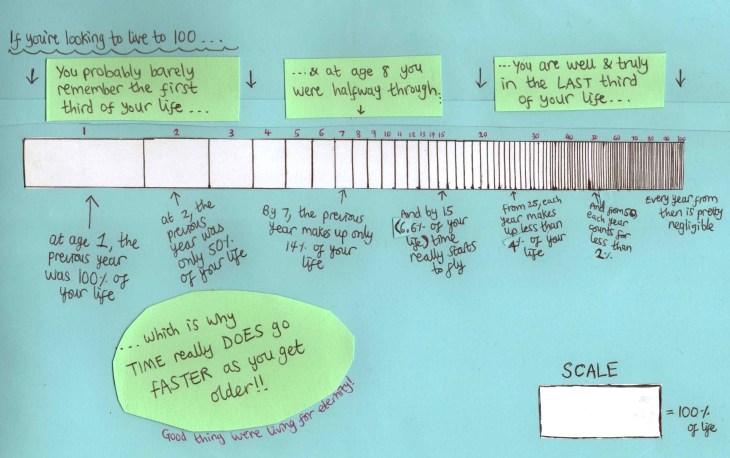 If you're looking to live to 100...
You probably barely
remember the first
third of your life...
...& at age 8 you
were halfway through.
...You are well & truly
in the LAST third
of your life...
1 2 3 4 5 6 7 8 9 10 11 12 13 14 15 20 30 40 50 60 70 80 90 100
at age 1, the
previous year
was 100% of
your life
at 2, the
previous
year was
only 50%
of your life
By 7, the previous
year makes up only
14% of your
life
And by 15
(6,6% of your
life) time
really starts
to fly
From 25, each
year makes
up less than
4% of your
life
And from 50
each year
counts for
less than
2%
Every year from
then is pretty
negligible
...which is why
TIME really DOES go
FASTER as you get
older!!
Good thing we're living for eternity!
SCALE
= 100%
of life